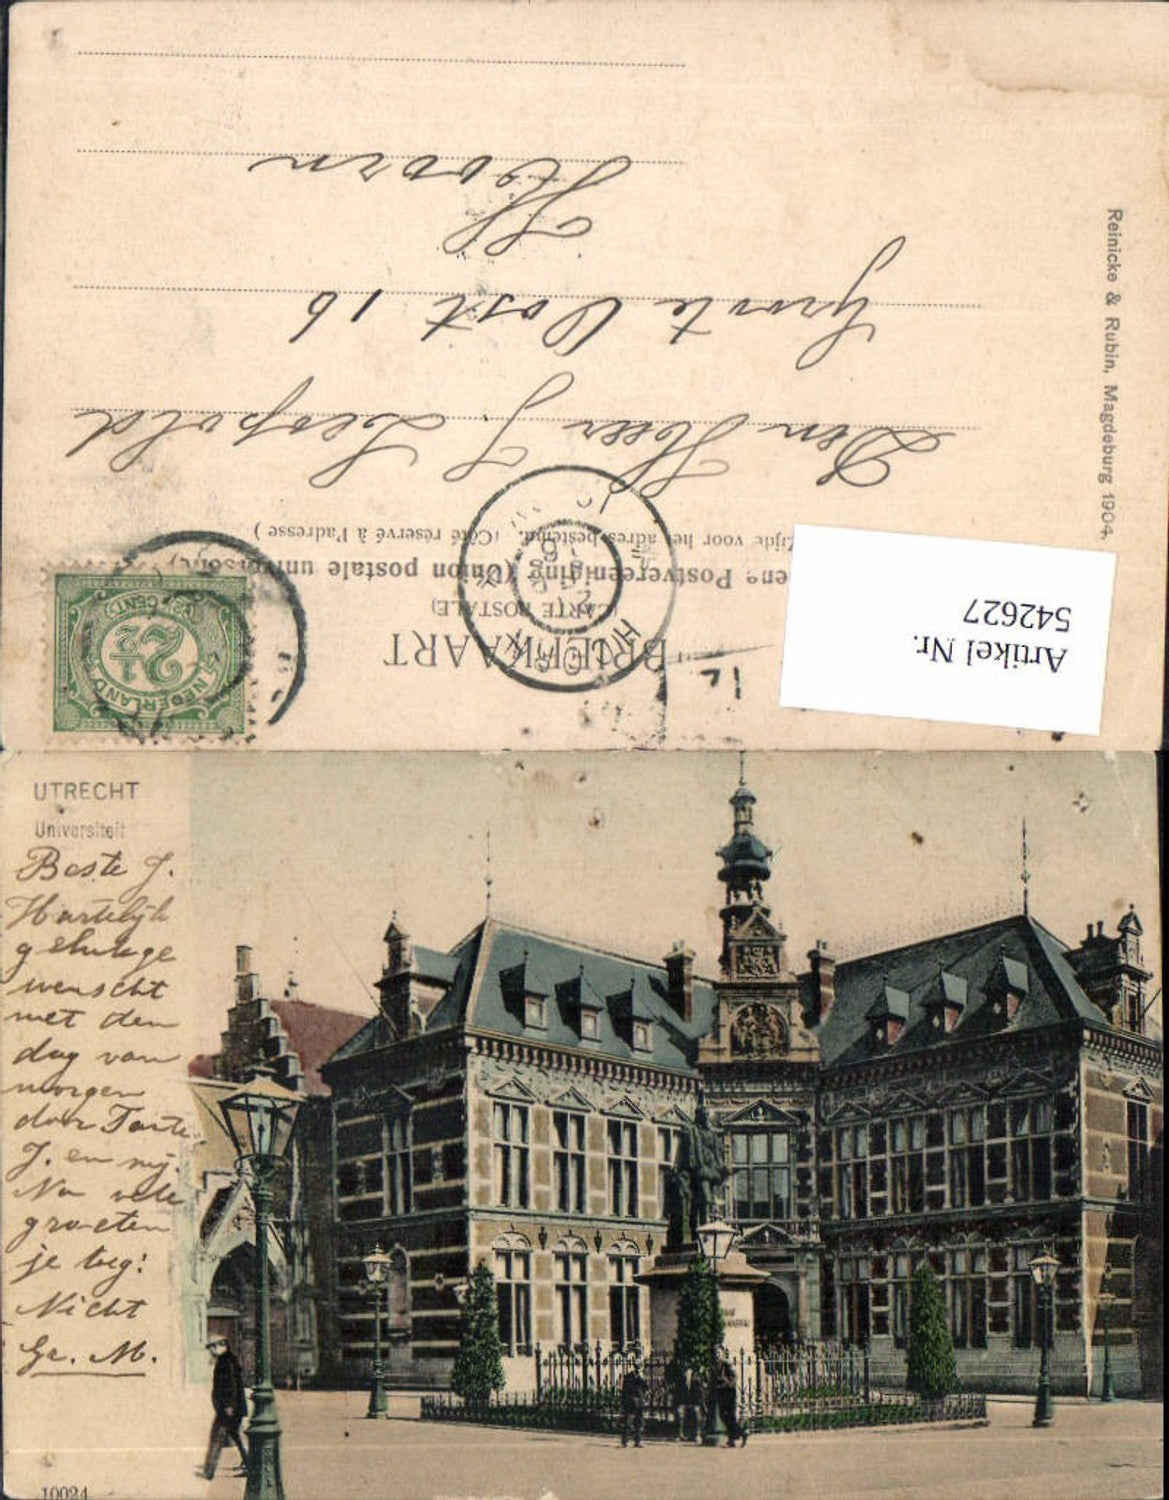 Artikel Nr.
542627
BRIEFKAART
(CARTE POSTALE)
Postvereeniging (Union postale universelle)
Zijde voor het adres bestemd. (Côté réservé à l'adresse)
NEDERLAND
2½
CENT
Den Heer J. Leopold
Groote Oost 16
Hoorn
Reinicke & Rubin, Magdeburg 1904.
UTRECHT
Universiteit
Beste J.
Hartelijk
geluk ge
wenscht
met den
dag van
morgen
door Tante
J. en mij.
Na vele
groeten
je toeg:
Nicht
Ge. M.
10024